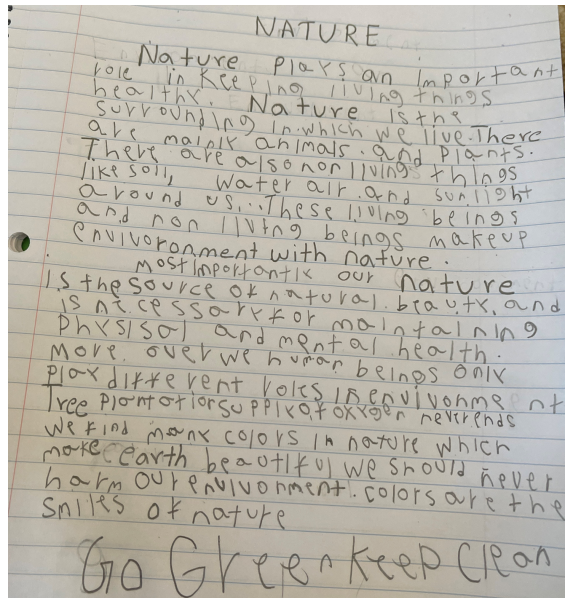 NATURE
Nature Plays an Important
role in Keeping living things
healthy. Nature is the
surrounding in which we live. There
are mainly animals. and Plants.
There are also non living things
like soil, water air and sunlight
around us... These living beings
and non living beings makeup
envivoronment with nature.
most importantly our nature
is the source of natural. beauty. and
is necessary for maintaining
Physisal and mental health.
More. over we human beings only
play different roles in envivonment
Tree Plantation supply of oxygen never ends
We find many colors in nature which
make earth beautiful we should never
harm our envivonment. colors are the
Smiles of nature
Go Green Keep Clean